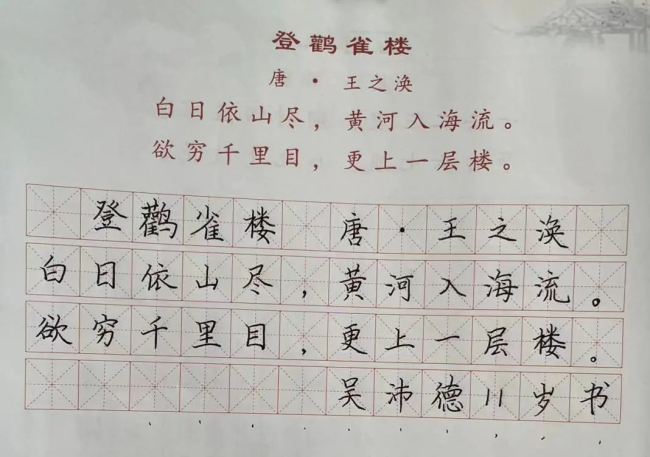 登鹳雀楼
唐·王之涣
白日依山尽，黄河入海流。
欲穷千里目，更上一层楼。
登鹳雀楼 唐·王之涣
白日依山尽，黄河入海流。
欲穷千里目，更上一层楼。
吴沛德11岁书